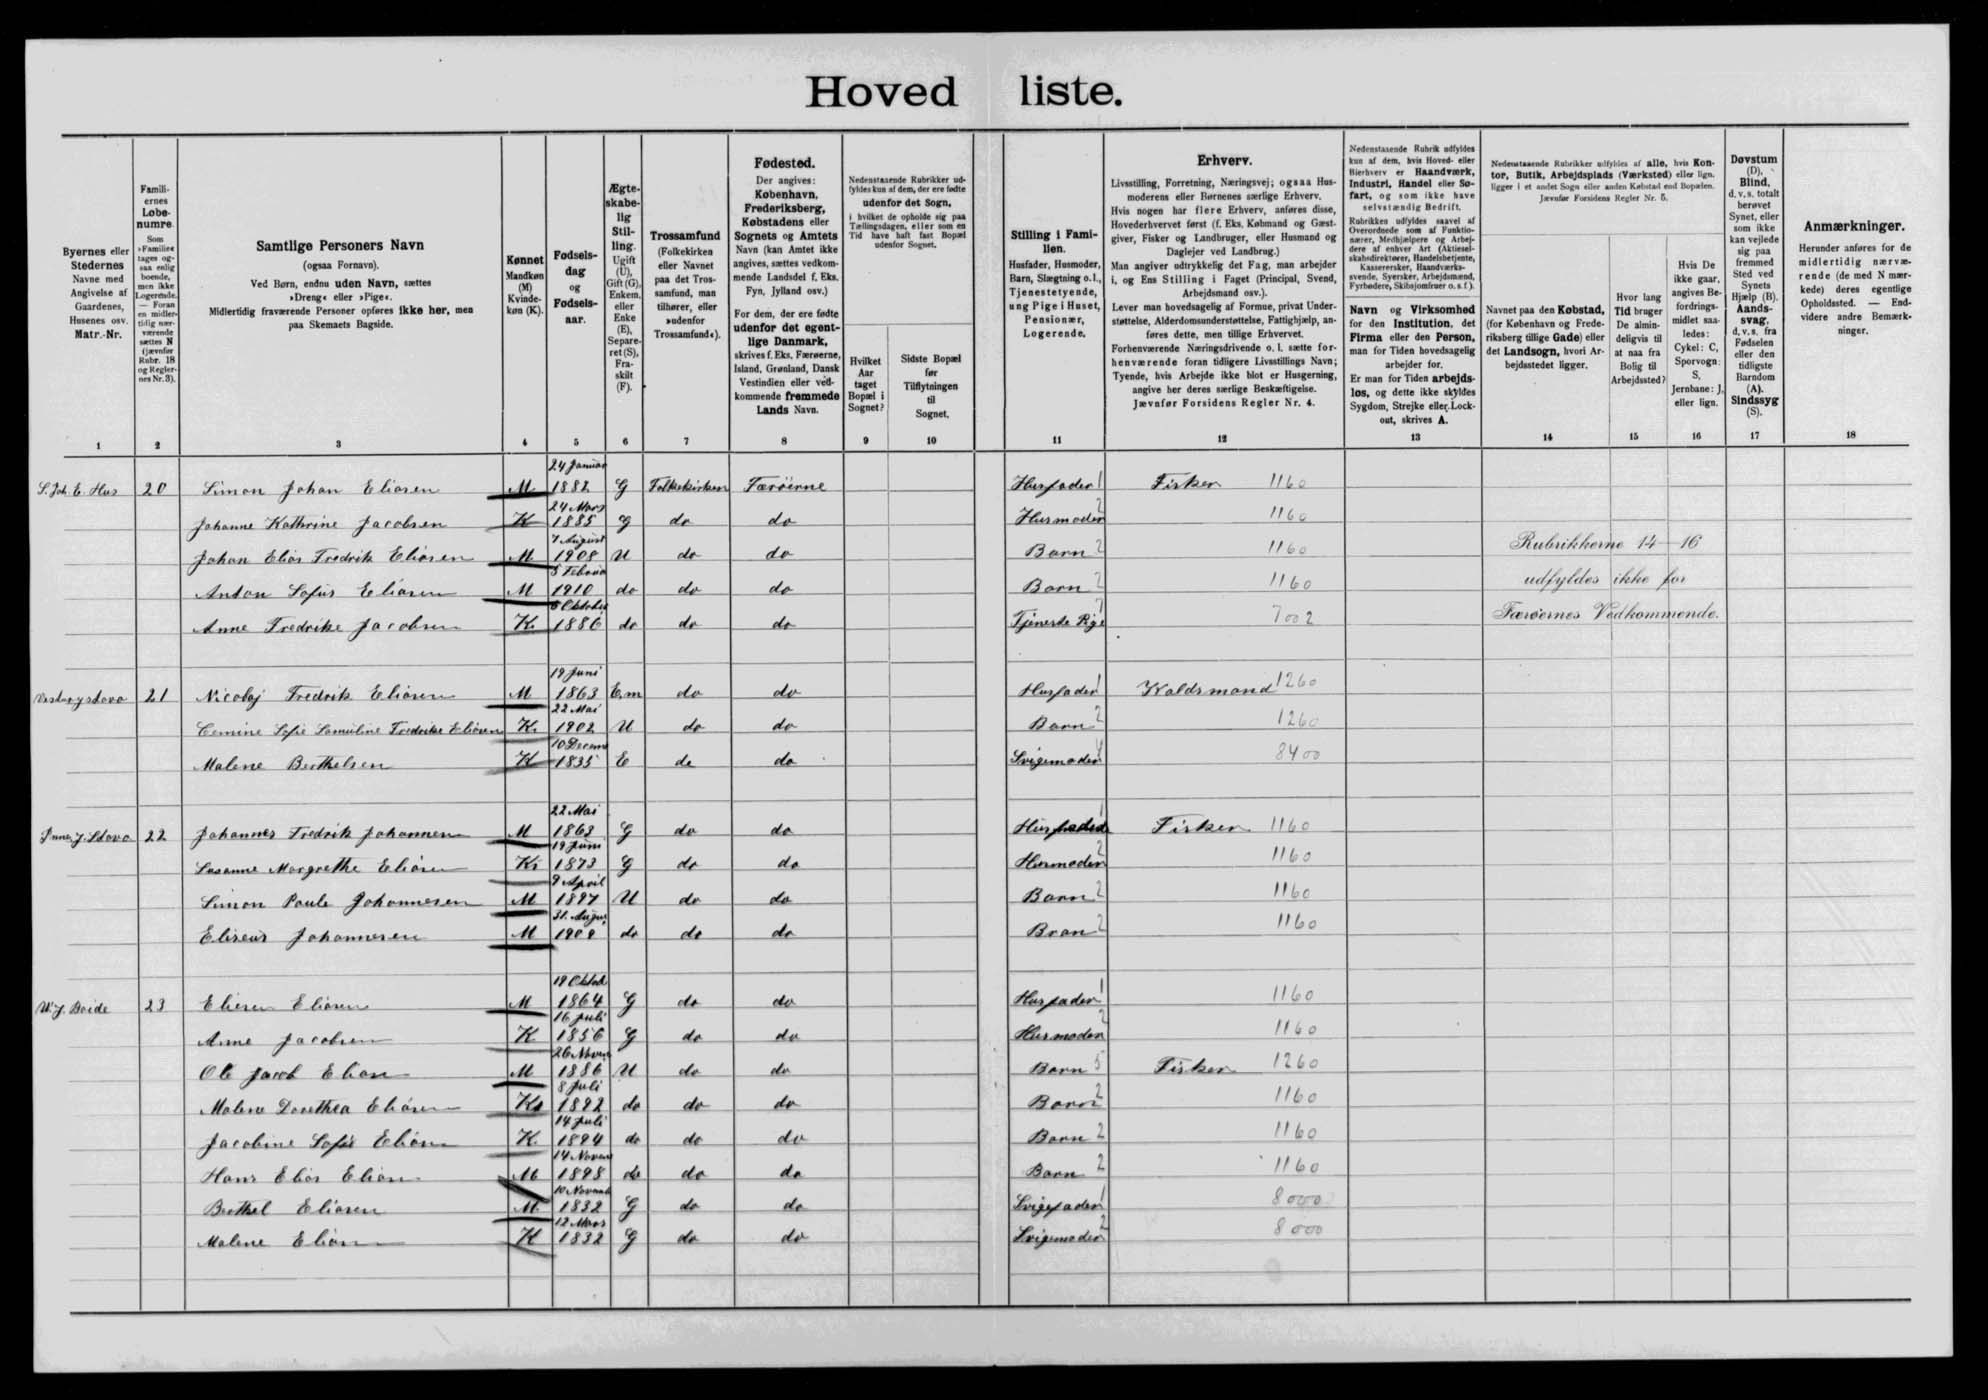 Hovedliste.
Byernes eller Stedernes Navne med Angivelse af Gaardenes, Husenes osv. Matr.-Nr.
Familiernes Løbenumre.
Som »Familie« tages ogsaa enlig boende, men ikke Logerende. — Foran en midlertidig nærværende sættes N (jævnfør Rubr. 18 og Reglernes Nr. 3).
Samtlige Personers Navn
(ogsaa Fornavn).
Ved Børn, endnu uden Navn, sættes
»Dreng« eller »Pige«.
Midlertidig fraværende Personer opføres ikke her, men
paa Skemaets Bagside.
Kønnet
Mandkøn (M) Kvindekøn (K).
Fødselsdag og Fødselsaar.
Ægteskabelig Stilling.
Ugift (U), Gift (G), Enkem. eller Enke (E), Separeret (S), Fraskilt (F).
Trossamfund
(Folkekirken eller Navnet paa det Trossamfund, man tilhører, eller »udenfor Trossamfund«).
Fødested.
Der angives:
København, Frederiksberg, Købstadens eller Sognets og Amtets Navn (kan Amtet ikke angives, sættes vedkommende Landsdel f. Eks. Fyn, Jylland osv.)
For dem, der ere fødte udenfor det egentlige Danmark, skrives f. Eks. Færøerne, Island, Grønland, Dansk Vestindien eller vedkommende fremmede Lands Navn.
Nedenstaaende Rubrikker udfyldes kun af dem, der ere fødte udenfor det Sogn, i hvilket de opholde sig paa Tællingsdagen, eller som en Tid have haft fast Bopæl udenfor Sognet.
Hvilket Aar taget Bopæl i Sognet?
Sidste Bopæl før Tilflytningen til Sognet.
Stilling i Familien.
Husfader, Husmoder, Barn, Slægtning o.l., Tjenestetyende, ung Pige i Huset, Pensionær, Logerende.
Erhverv.
Livsstilling, Forretning, Næringsvej; ogsaa Husmoderens eller Børnenes særlige Erhverv.
Hvis nogen har flere Erhverv, anføres disse, Hovederhvervet først (f. Eks. Købmand og Gæstgiver, Fisker og Landbruger, eller Husmand og Daglejer ved Landbrug.)
Man angiver udtrykkelig det Fag, man arbejder i, og Ens Stilling i Faget (Principal, Svend, Arbejdsmand osv.).
Lever man hovedsagelig af Formue, privat Understøttelse, Alderdomsunderstøttelse, Fattighjælp, anføres dette, men tillige Erhvervet.
Forhenværende Næringsdrivende o. l. sætte forhenværende foran tidligere Livsstillings Navn; Tyende, hvis Arbejde ikke blot er Husgerning, angive her deres særlige Beskæftigelse.
Jævnfør Forsidens Regler Nr. 4.
Nedenstaaende Rubrik udfyldes kun af dem, hvis Hoved- eller Bierhverv er Haandværk, Industri, Handel eller Søfart, og som ikke have selvstændig Bedrift.
Rubrikken udfyldes saavel af Overordnede som af Funktionærer, Medhjælpere og Arbejdere af enhver Art (Aktieselskabsdirektører, Handelsbetjente, Kasserersker, Haandværkssvende, Syersker, Arbejdsmænd, Fyrbødere, Skibsjomfruer o. s. f.).
Navn og Virksomhed for den Institution, det Firma eller den Person, man for Tiden hovedsagelig arbejder for.
Er man for Tiden arbejdsløs, og dette ikke skyldes Sygdom, Strejke eller Lockout, skrives A.
Nedenstaaende Rubrikker udfyldes af alle, hvis Kontor, Butik, Arbejdsplads (Værksted) eller lign. ligger i et andet Sogn eller anden Købstad end Bopælen.
Jævnfør Forsidens Regler Nr. 5.
Navnet paa den Købstad, (for København og Frederiksberg tillige Gade) eller det Landsogn, hvori Arbejdsstedet ligger.
Hvor lang Tid bruger De almindeligvis til at naa fra Bolig til Arbejdssted?
Hvis De ikke gaar, angives Befordringsmidlet saaledes: Cykel: C, Sporvogn: S, Jernbane: J, eller lign.
Døvstum (D), Blind, d. v. s. totalt berøvet Synet, eller som ikke kan vejlede sig paa fremmed Sted ved Synets Hjælp (B). Aandssvag, d. v. s. fra Fødselen eller den tidligste Barndom (A). Sindssyg (S).
Anmærkninger.
Herunder anføres for de midlertidig nærværende (de med N mærkede) deres egentlige Opholdssted. — Endvidere andre Bemærkninger.
1 2 3 4 5 6 7 8 9 10 11 12 13 14 15 16 17 18
S. Joh. E. Hus 20 Simon Johan Eliasen M 24 Januar 1882 G Folkekirken Færøerne Husfader 1 Fisker 1160
Johanne Kathrine Jacobsen K 24 Mars 1885 G do do Husmoder 2 1160
Johan Elias Fredrik Eliasen M 7 August 1908 U do do Barn 2 1160 Rubrikkerne 14-16
Anton Sofus Eliasen M 5 Februa 1910 do do do Barn 2 1160 udfyldes ikke for
Anne Fredrike Jacobsen K. 6 Oktober 1886 do do do Tjeneste Pige 7 7002 Færøernes Vedkommende.
21 Nicolaj Fredrik Eliasen M 19 Juni 1863 E.m do do Husfader 1 Kaldsmand 1260
Sofie Fredrike Eliasen K. 22 Mai 1902 U do do Barn 2 1260
Malene Berthelsen K 10 Decem 1835 E do do Svigemoder 4 8400
22 Johannes Fredrik Johannesen M 22 Mai 1863 G do do Husfader 1 Fisker 1160
Susanne Margrethe Eliasen K. 19 Juni 1873 G do do Husmoder 2 1160
Simon Paule Johannesen M 9 April 1897 U do do Barn 2 1160
Eliseus Johannesen M 31. Augus 1908 do do do Bran 2 1160
23 Eliesen Eliasen M 18 Oktob 1864 G do do Husfader 1 1160
Anne Jacobsen K 16 Juli 1856 G do do Husmoder 2 1160
Ole Jacob Eliasen M 26 Novem 1886 U do do Barn 5 Fisker 1260
Malene Dorethea Eliasen K. 8 Juli 1892 do do do Barn 2 1160
Jacobine Sofie Eliasen K. 14 Juli 1894 do do do Barn 2 1160
Hans Elias Eliasen M 14 Novem 1898 do do do Barn 2 1160
Berthel Eliasen M. 10 Novemb 1832 G do do Svigefader 1 8000
Malene Eliasen K 12 Mars 1832 G do do Svigemoder 2 8000